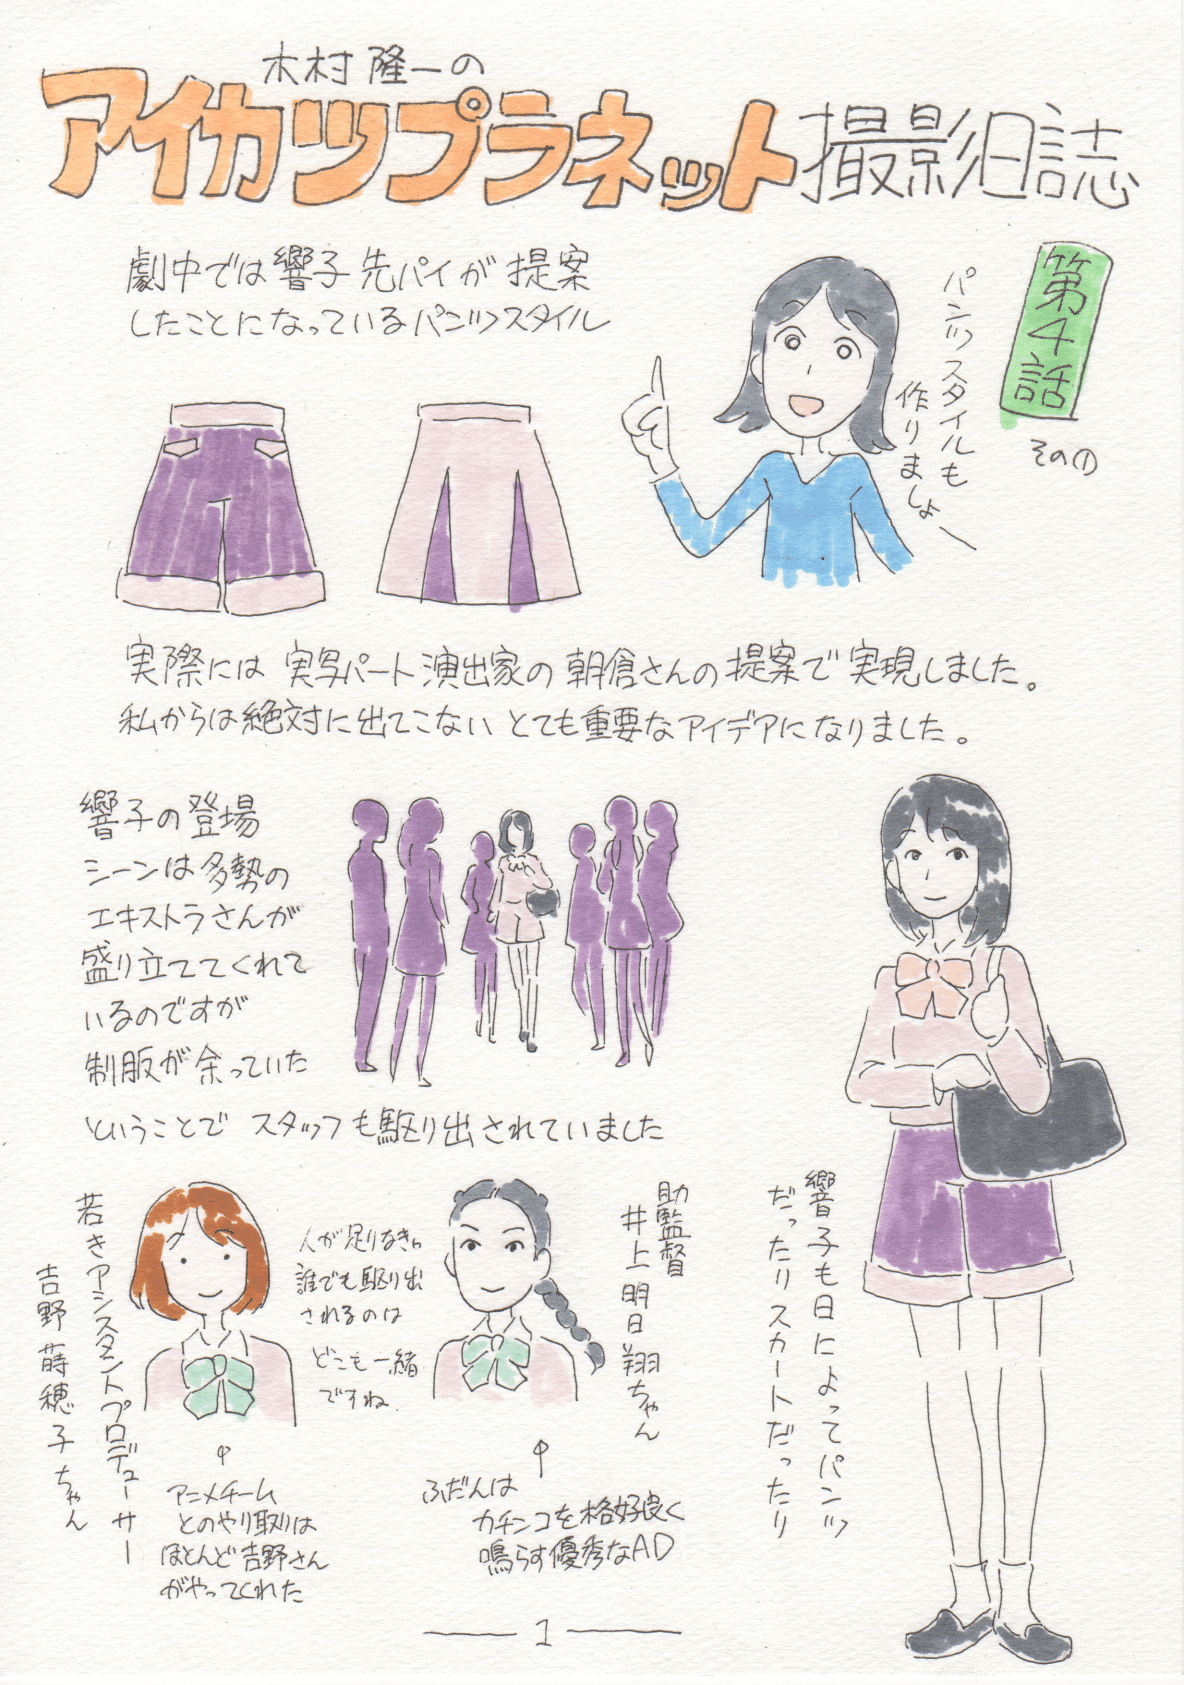 木村隆一の
アイカツプラネット撮影日誌
第4話
その①
劇中では響子先パイが提案
したことになっているパンツスタイル
パンツスタイルも
作りましょー
実際には実写パート演出家の朝倉さんの提案で実現しました。
私からは絶対に出てこないとても重要なアイデアになりました。
響子の登場
シーンは多勢の
エキストラさんが
盛り立ててくれて
いるのですが
制服が余っていた
ということでスタッフも駆り出されていました
響子も日によってパンツ
だったりスカートだったり
助監督
井上明日翔ちゃん
人が足りなきゃ
誰でも駆り出
されるのは
どこも一緒
ですね。
若きアシスタントプロデューサー
吉野蒔穂子ちゃん
アニメチーム
とのやり取りは
ほとんど吉野さん
がやってくれた
ふだんは
カチンコを格好良く
鳴らす優秀なAD
1